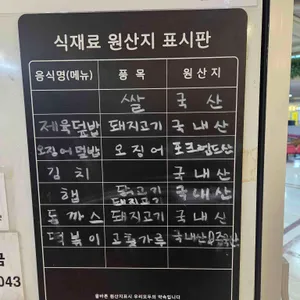 식재료 원산지 표시판
음식명(메뉴) 품목 원산지
쌀 국산
제육덮밥 돼지고기 국내산
오징어덮밥 오징어 포클랜드산
김치 국내산
햄 닭고기 돼지고기 국내산
돈까스 돼지고기 국내산
떡볶이 고춧가루 국내산&중국산
올바른 원산지표시 우리모두의 약속입니다
금
043